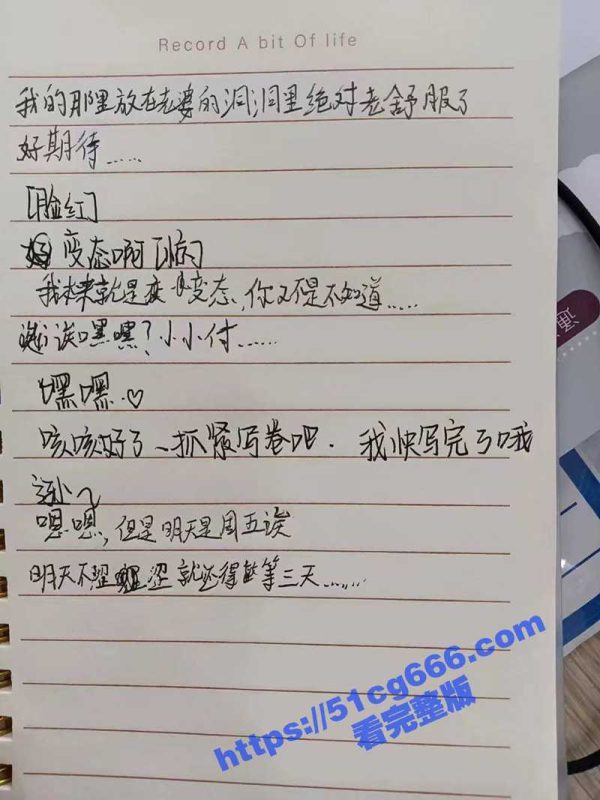 Record A bit Of life
我的那里放在老婆的洞洞里绝对老舒服了
好期待……
[脸红]
变态啊[
我本来就是变态,你又不是不知道……
诶嘿嘿?小小付……
嘿嘿.♡
咳咳好了~抓紧写卷吧. 我快写完了哦
嗯嗯,但是明天是周五诶
明天不涩涩就还得等三天……
https://51cg666.com
看完整版